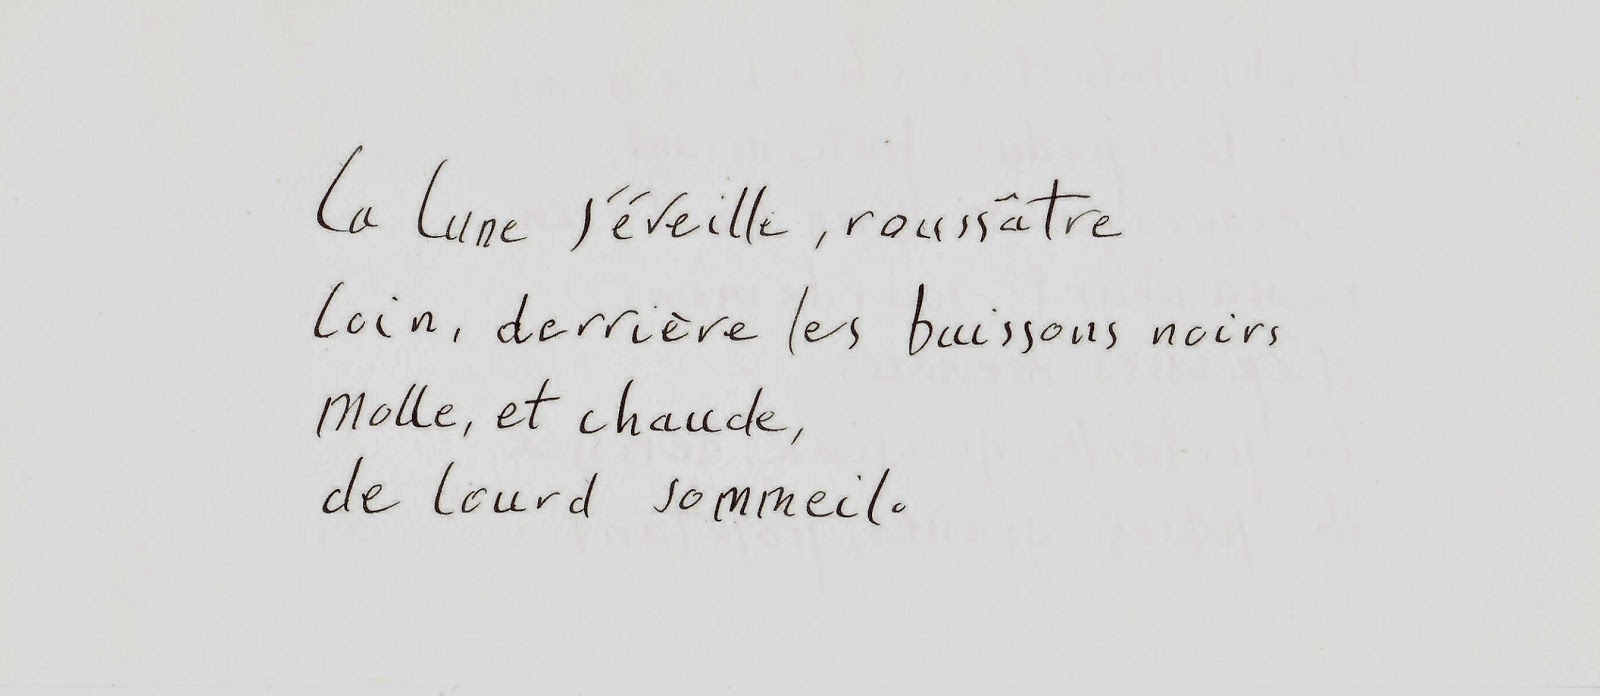 La Lune s'éveille, roussâtre
Loin, derrière les buissons noirs
Molle, et chaude,
de lourd sommeil.